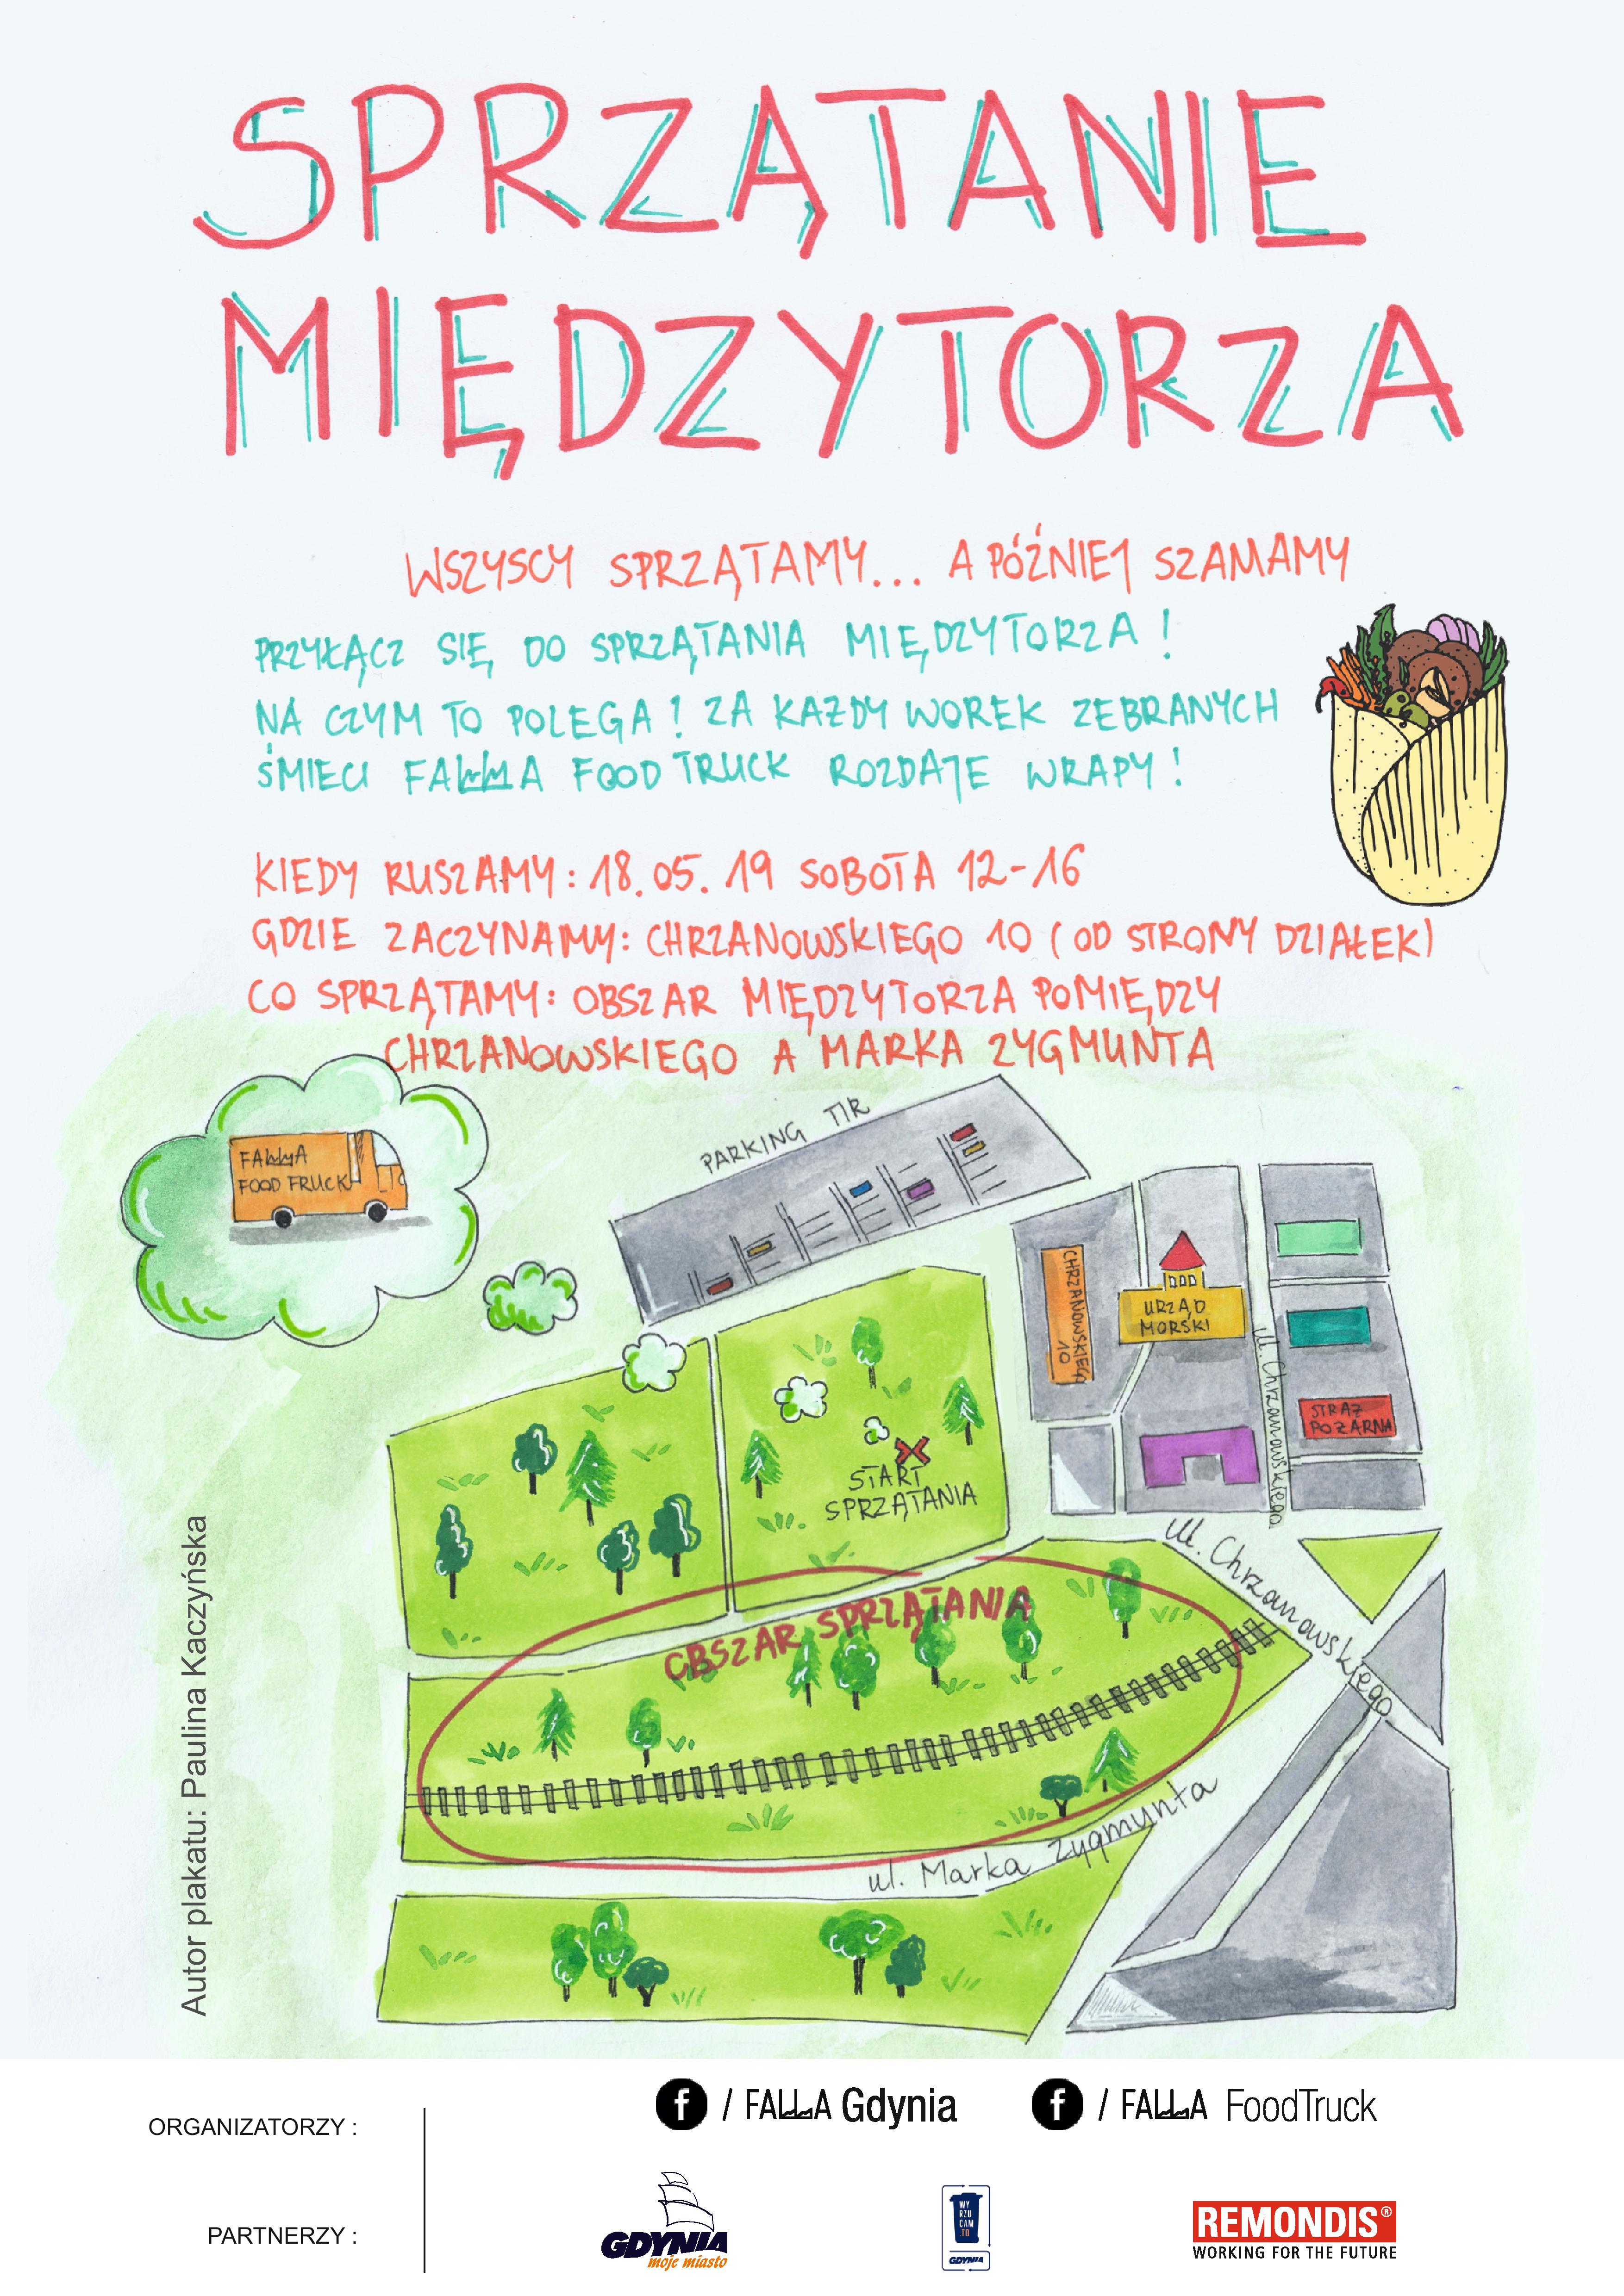 SPRZĄTANIE
MIĘDZYTORZA
WSZYSCY SPRZĄTAMY... A PÓŹNIEJ SZAMAMY
PRZYŁĄCZ SIĘ DO SPRZĄTANIA MIĘDZYTORZA!
NA CZYM TO POLEGA! ZA KAŻDY WOREK ZEBRANYCH
ŚMIECI FALLA FOOD TRUCK ROZDAJE WRAPY!
KIEDY RUSZAMY: 18.05.19 SOBOTA 12-16
GDZIE ZACZYNAMY: CHRZANOWSKIEGO 10 (OD STRONY DZIAŁEK)
CO SPRZĄTAMY: OBSZAR MIĘDZYTORZA POMIĘDZY
CHRZANOWSKIEGO A MARKA ZYGMUNTA
FALLA
FOOD FRUCK
PARKING TIR
CHRZANOWSKIEGO
10
URZĄD
MORSKI
ul. Chrzanowskiego
STRAŻ
POŻARNA
START
SPRZĄTANIA
ul. Chrzanowskiego
OBSZAR SPRZĄTANIA
ul. Marka Zygmunta
Autor plakatu: Paulina Kaczyńska
ORGANIZATORZY :
f / FALLA Gdynia
f / FALLA FoodTruck
PARTNERZY :
GDYNIA
moje miasto
WY
RZU
CAM
.TO
GDYNIA
REMONDIS®
WORKING FOR THE FUTURE